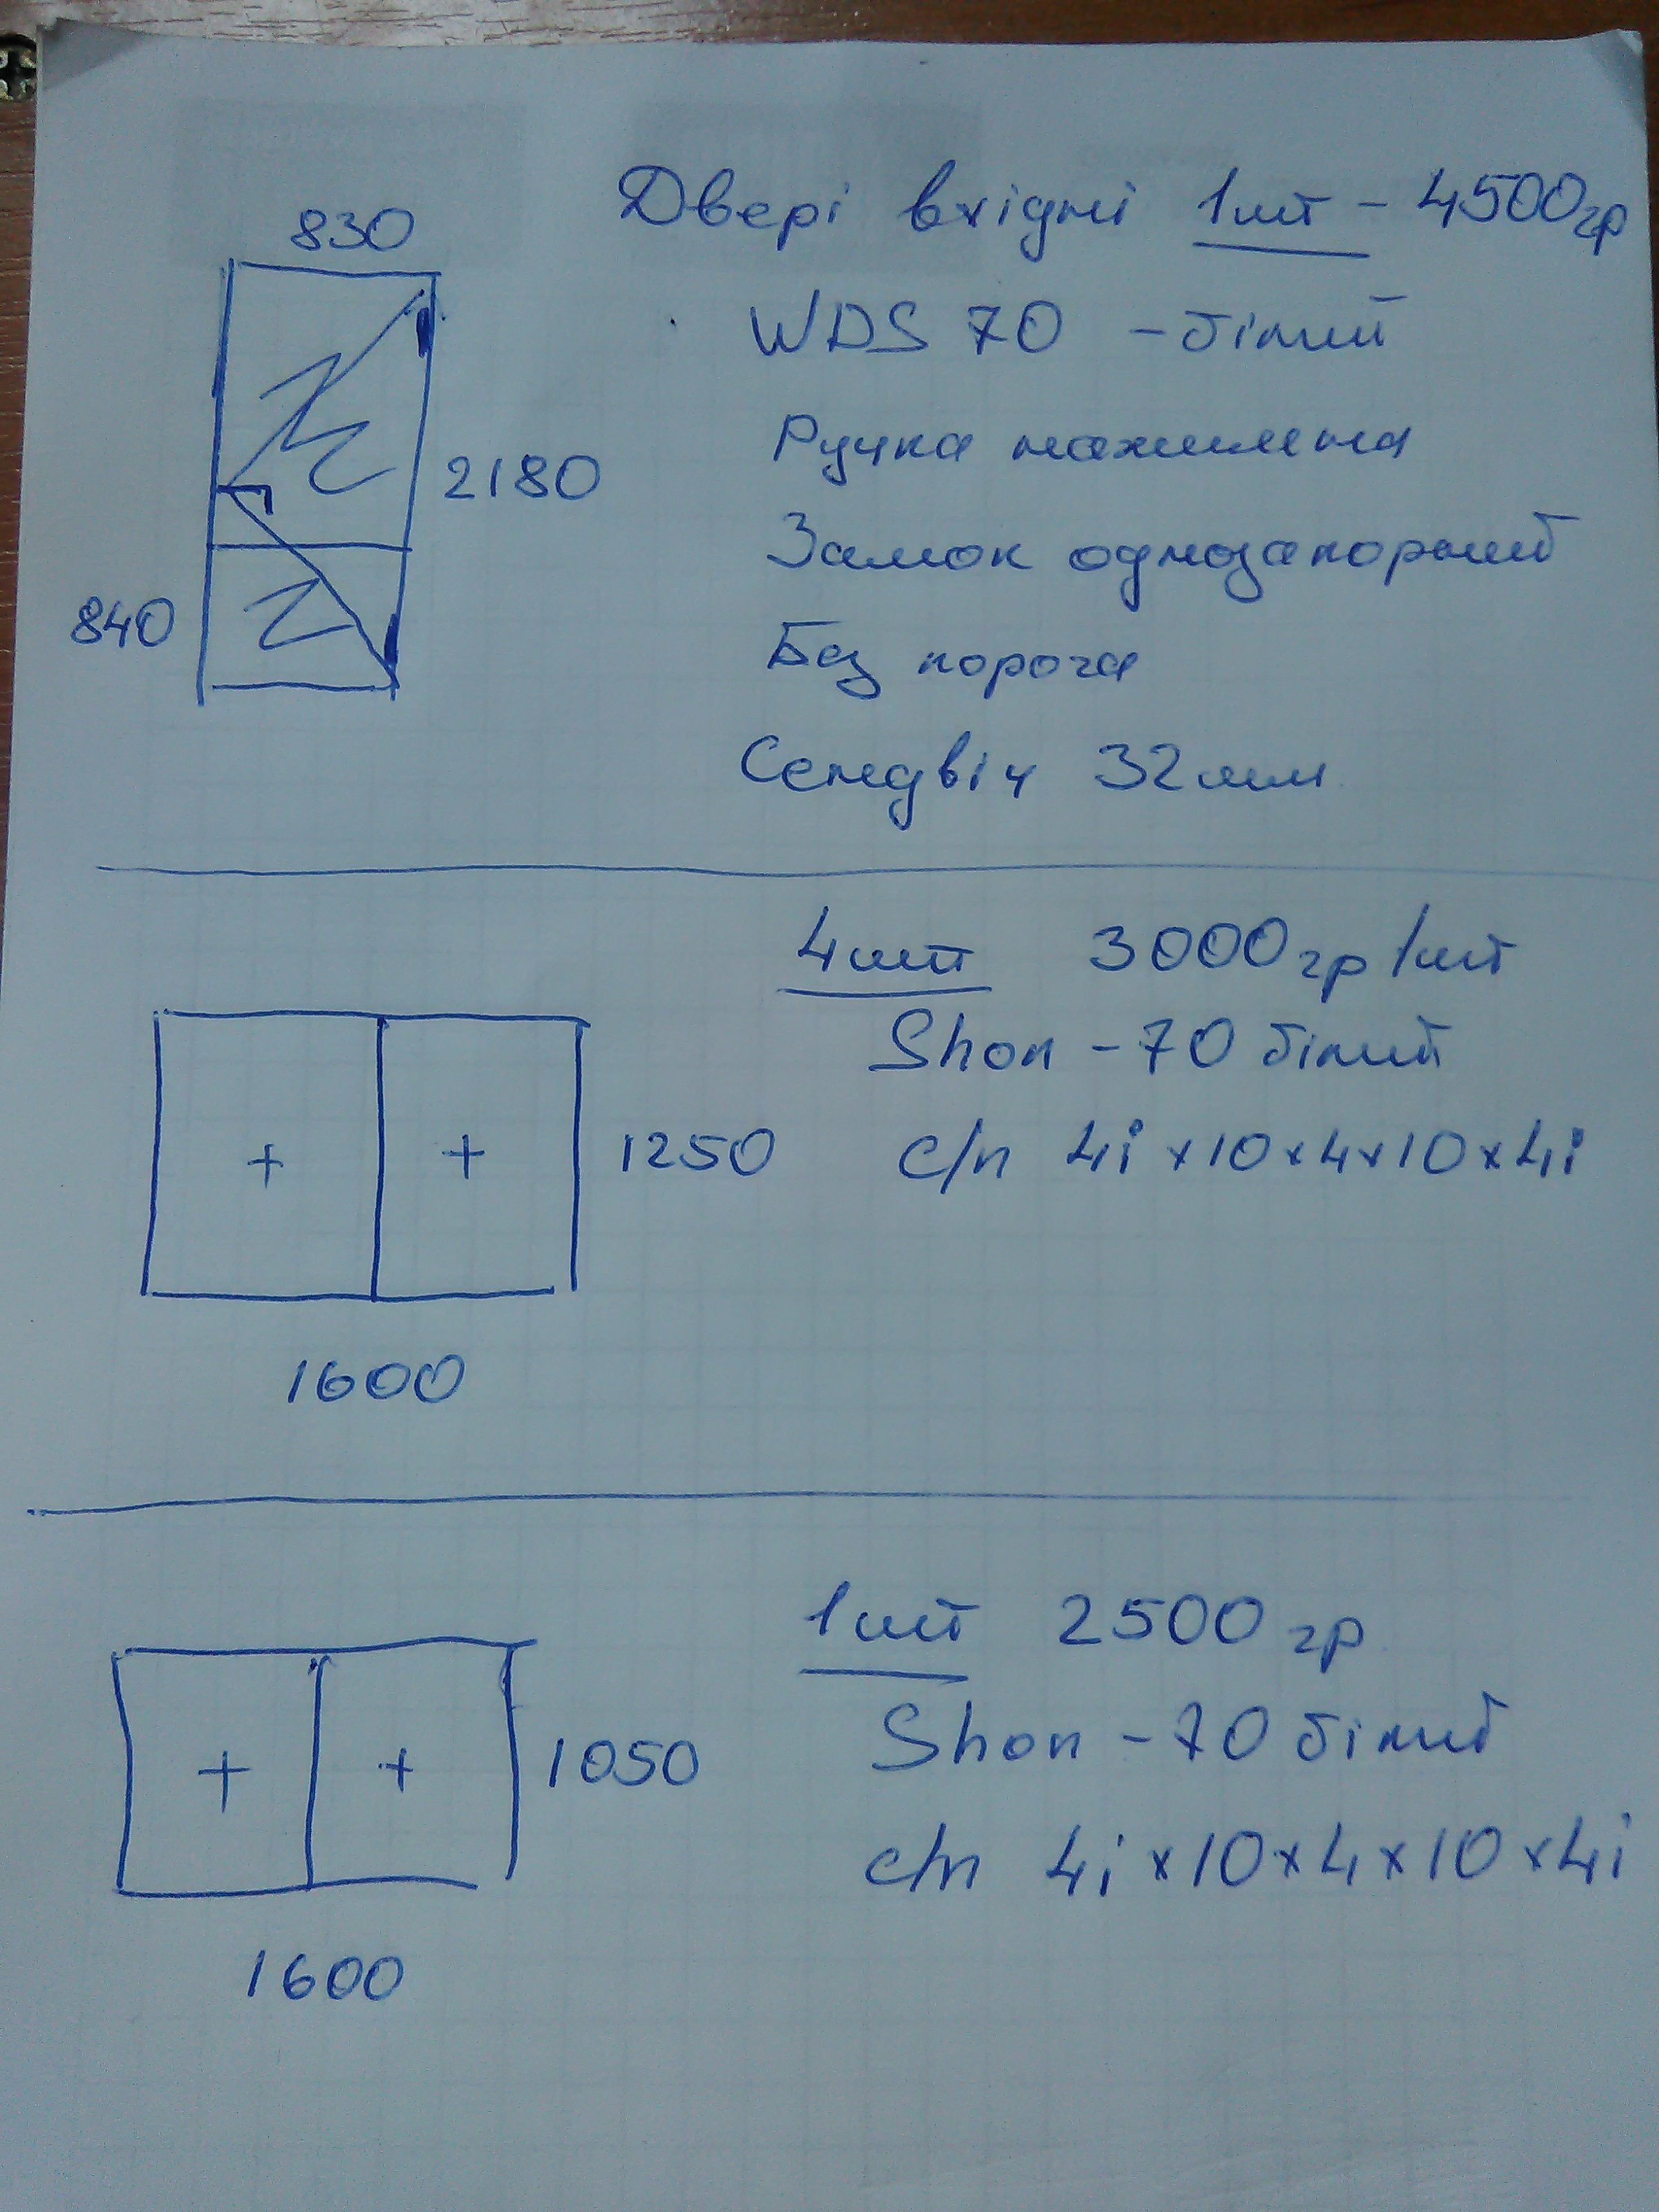 830
Двері вхідні 1шт - 4500гр
WDS 70 - білий
Ручка нажимна
2180
Замок однозапорний
840
Без порога
Сендвіч 32мм
4шт 3000гр/шт
Shon - 70 білий
1250
с/п 4i x 10 x 4 x 10 x 4i
1600
1шт 2500гр
Shon - 70 білий
1050
с/п 4i x 10 x 4 x 10 x 4i
1600